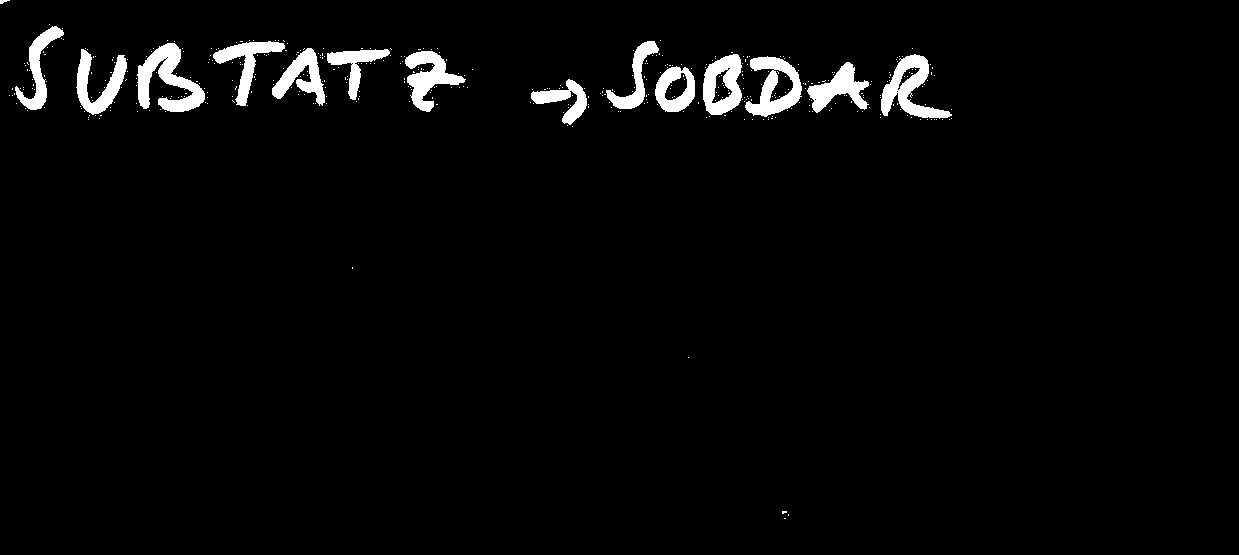 SUBTATZ → SOBDAR